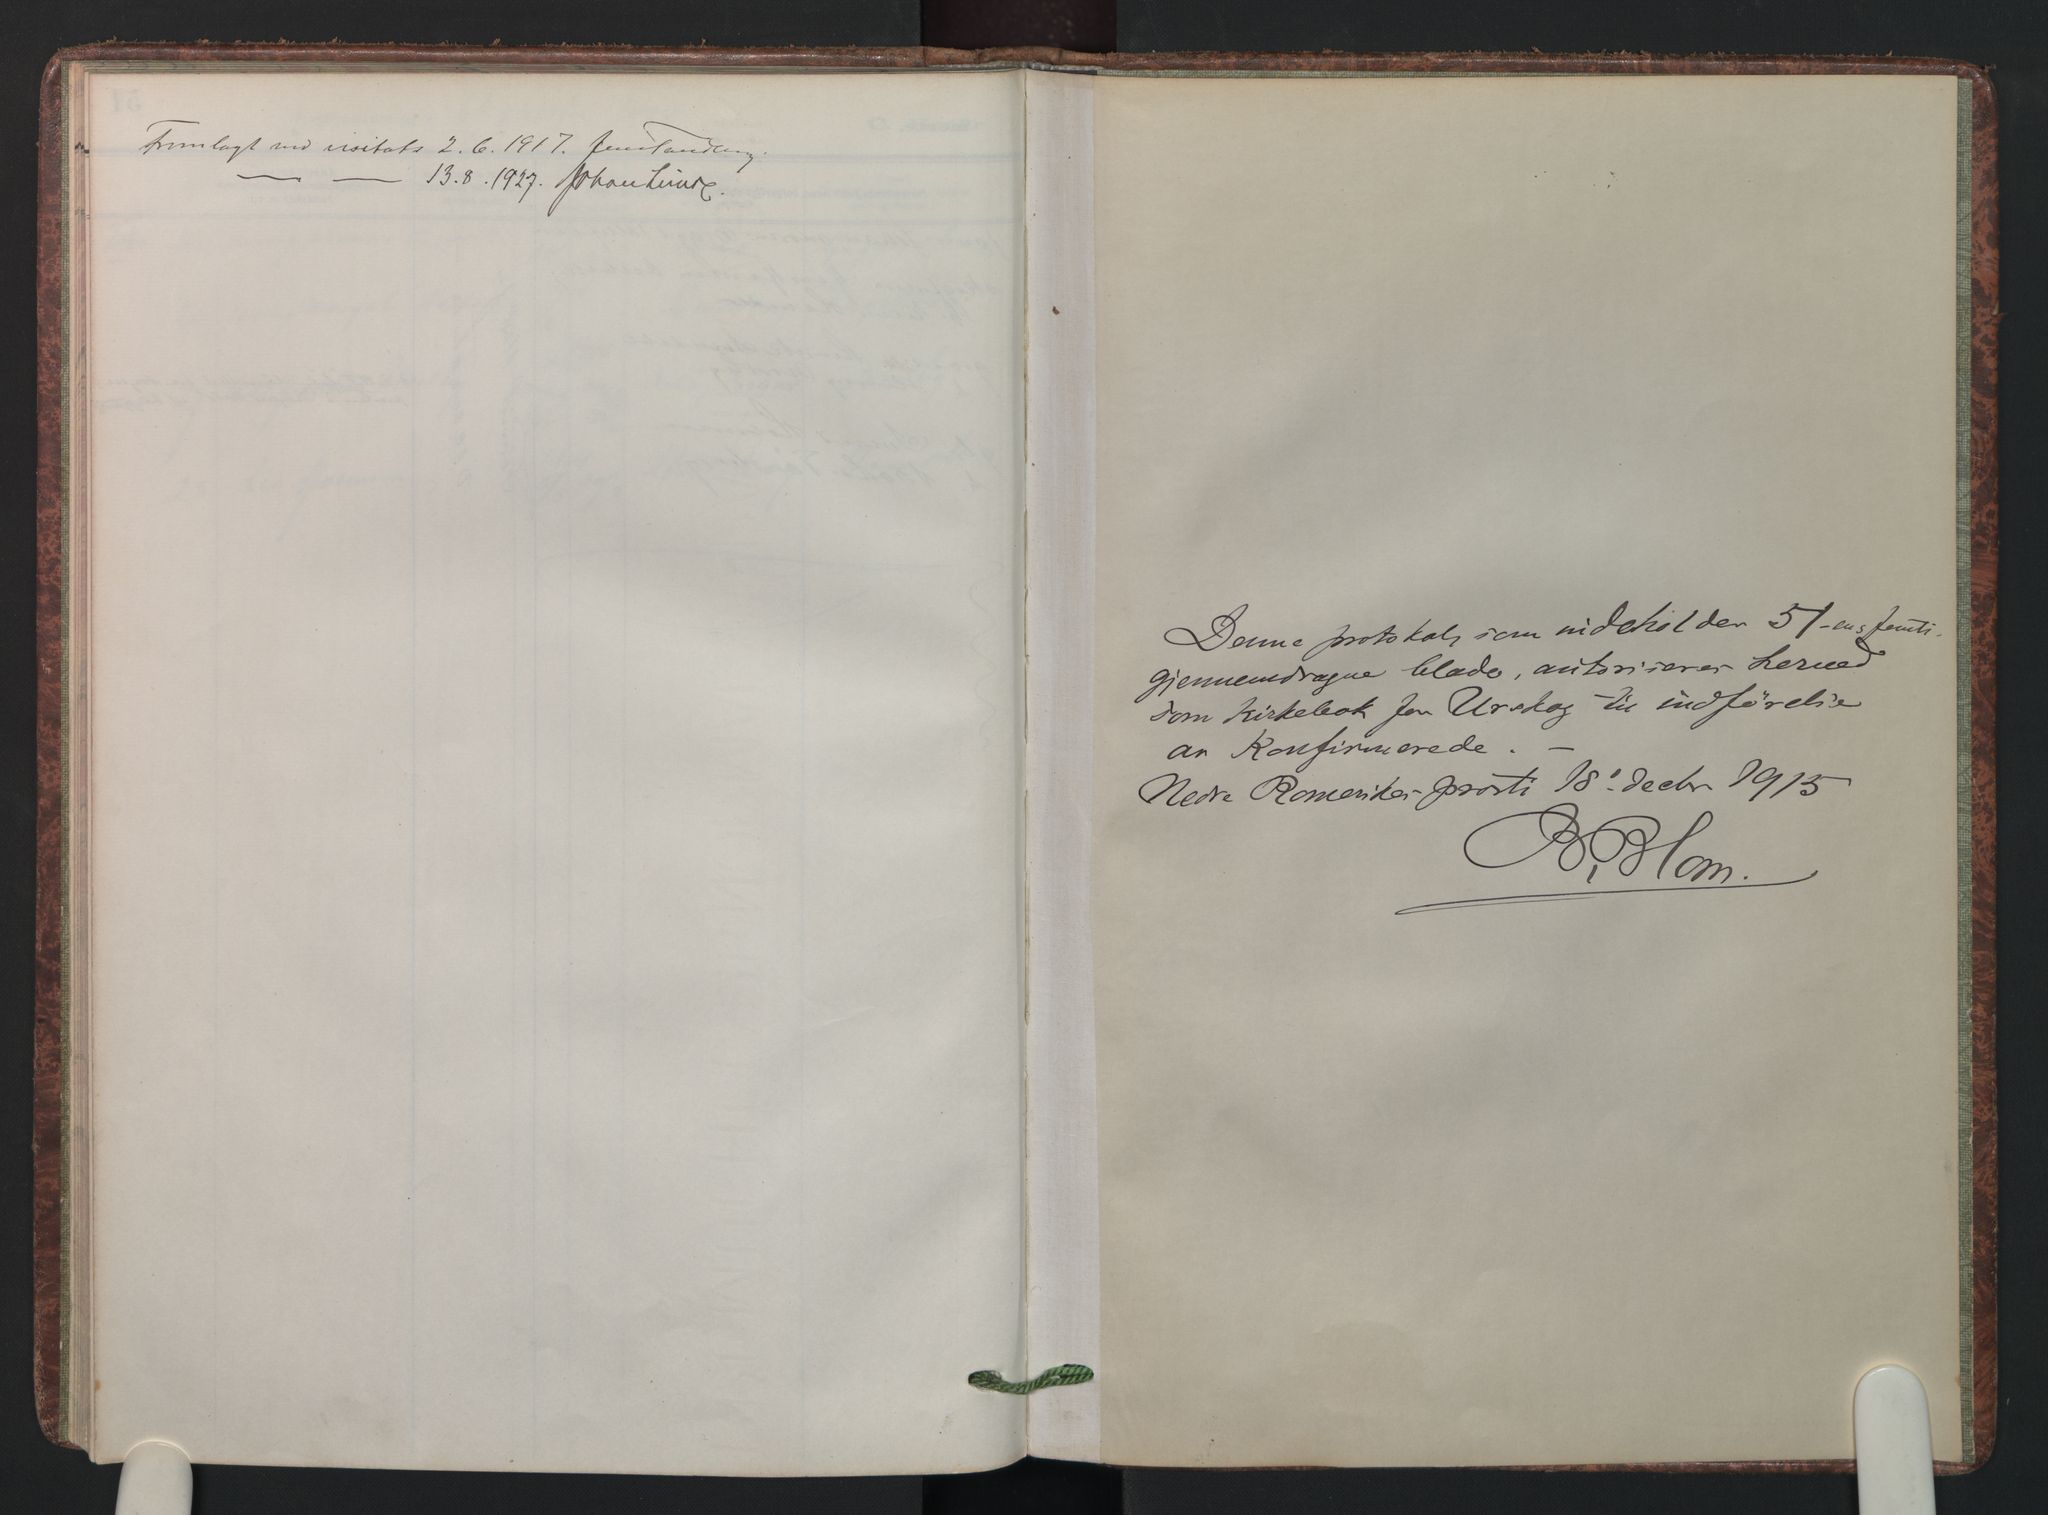 Fremlagt ved visitats 2. 6. 1917. Jens Tandberg.
— — 13. 8. 1927. Johan Lunde.
Denne protokol, som indeholder 51 - en og femti -
gjennemdragne blade, autoriseres herved
som kirkebok for Urskog til indförelse
av konfirmerede. —
Nedre Romerikes prosti 18' decbr 1915
B. Blom.